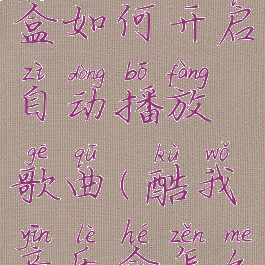 盒如何开启
zì dòng bō fàng
自动播放
gē qǔ kù wǒ
歌曲(酷我
yīn lè hé zěn me
音乐盒怎么